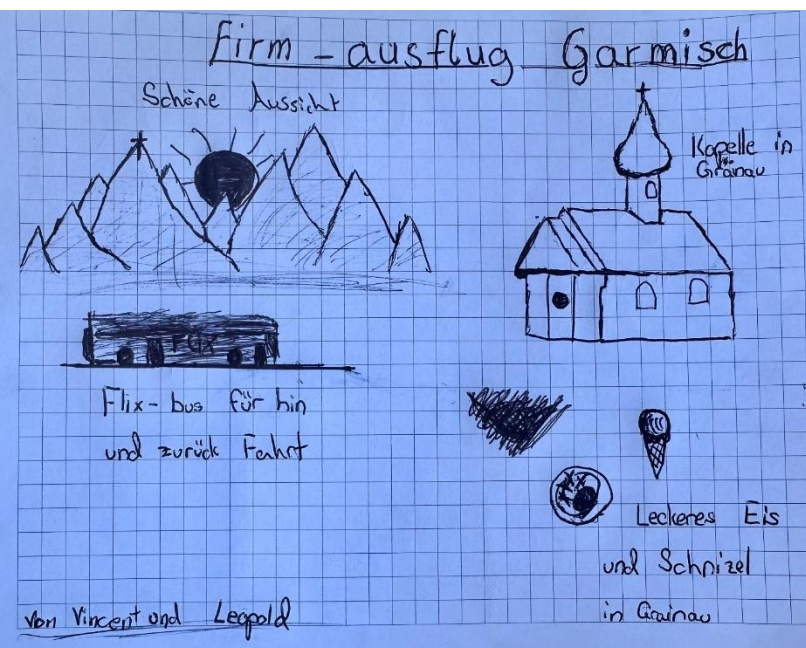 Firm - ausflug Garmisch
Schöne Aussicht
Kapelle in
Grainau
FLIX
Flix - bus für hin
und zurück Fahrt
Leckeres Eis
und Schnizel
in Grainau
Von Vincent und Leopold